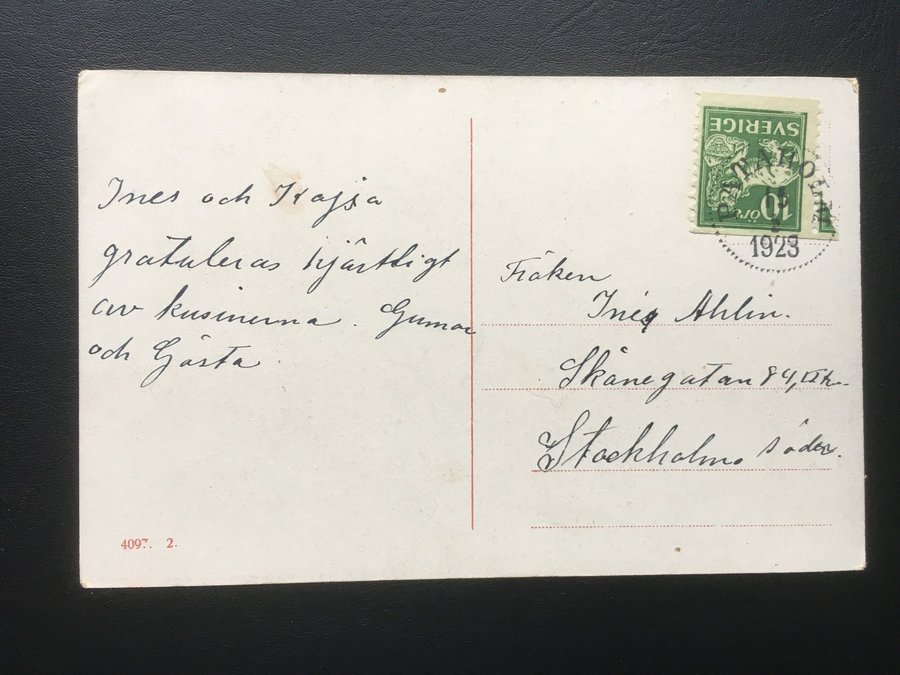 Ines och Kajsa
gratuleras hjärtligt
av kusinerna. Gunnar
och Gösta.
4097. 2.
SVERIGE
10 öre
PATAHOLM
1923
Fröken
Ines Ahlin.
Skånegatan 84,
Stockholm. söder.